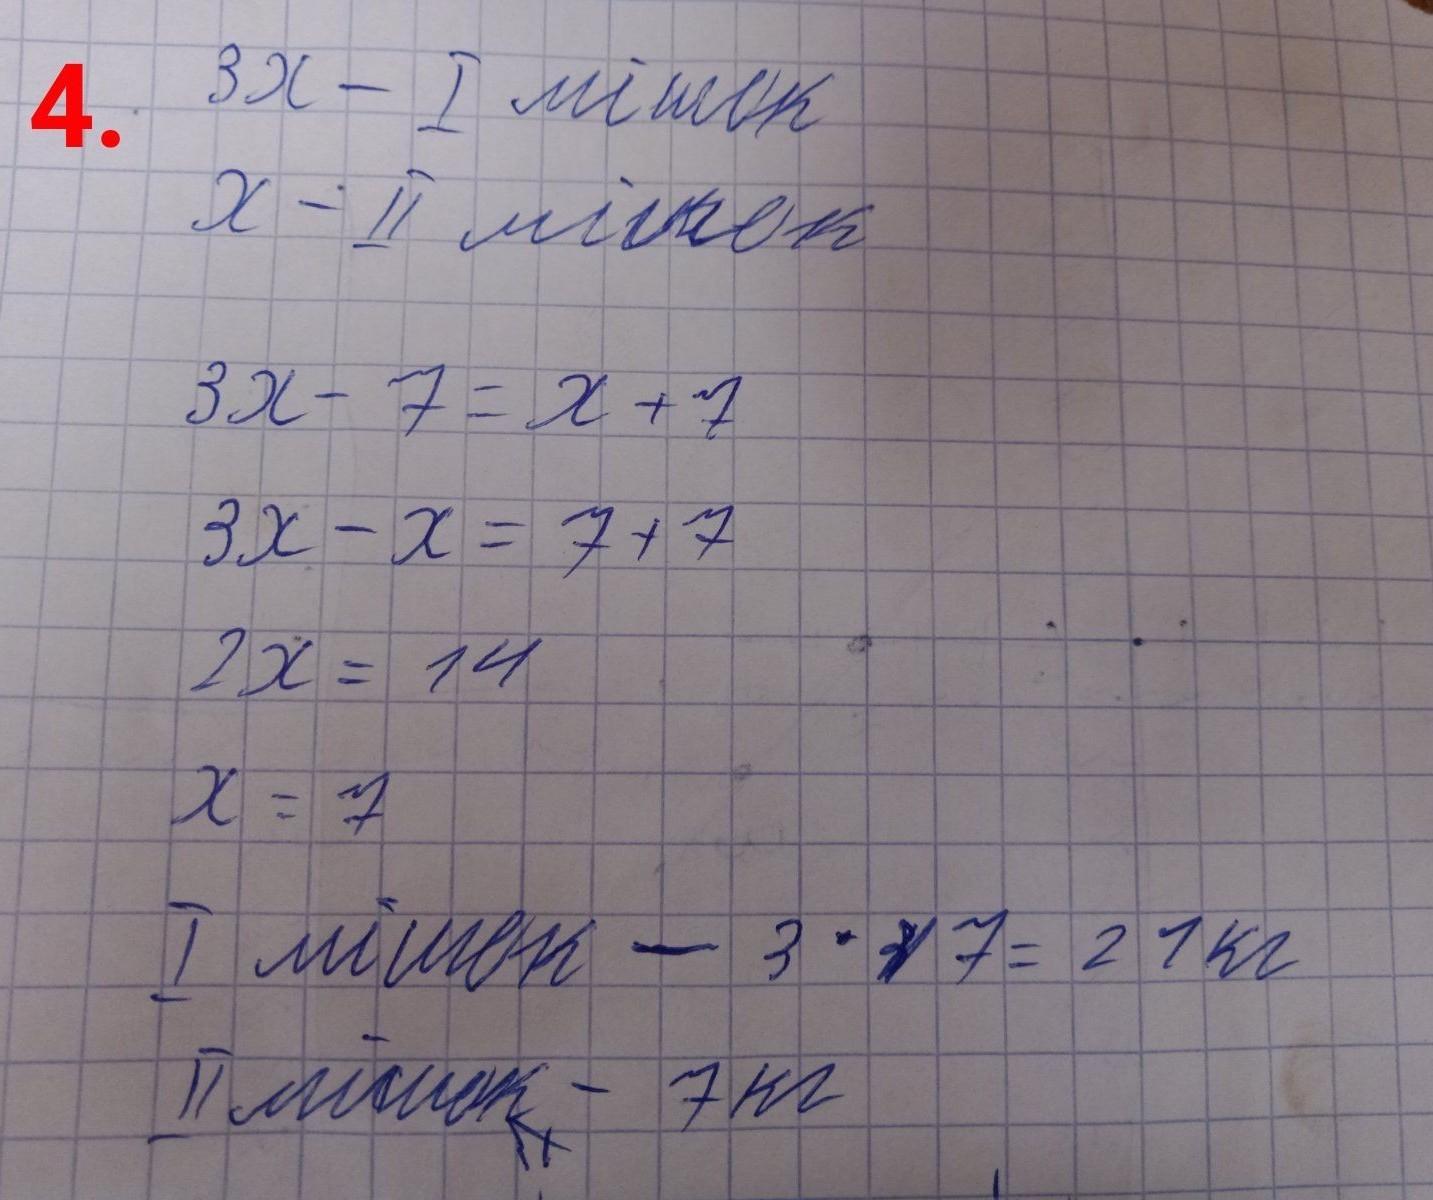 4. 3x - I мішок
x - II мішок
3x - 7 = x + 7
3x - x = 7 + 7
2x = 14
x = 7
I мішок - 3 · 7 = 21 кг
II мішок - 7 кг